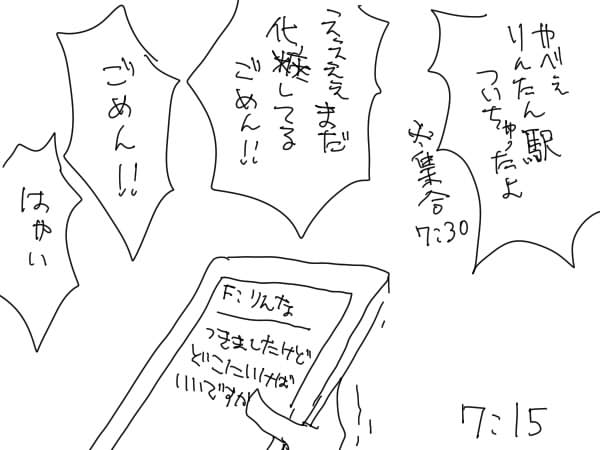 やべぇ
りんたん駅
ついちゃったよ
※集合
7:30
うええぇまだ
化粧してる
ごめん!!
ごめん!!
はやい
F:りんな
つきましたけど
どこにいけば
いいですか
7:15